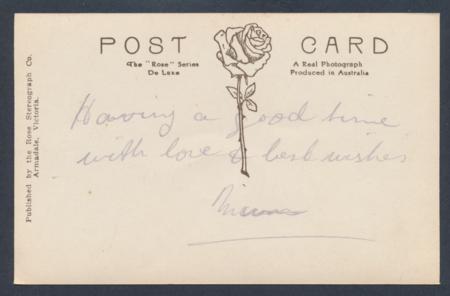 POST CARD
The "Rose" Series
De Luxe
A Real Photograph
Produced in Australia
Published by the Rose Stereograph Co.
Armadale, Victoria.
Having a good time
with love & best wishes